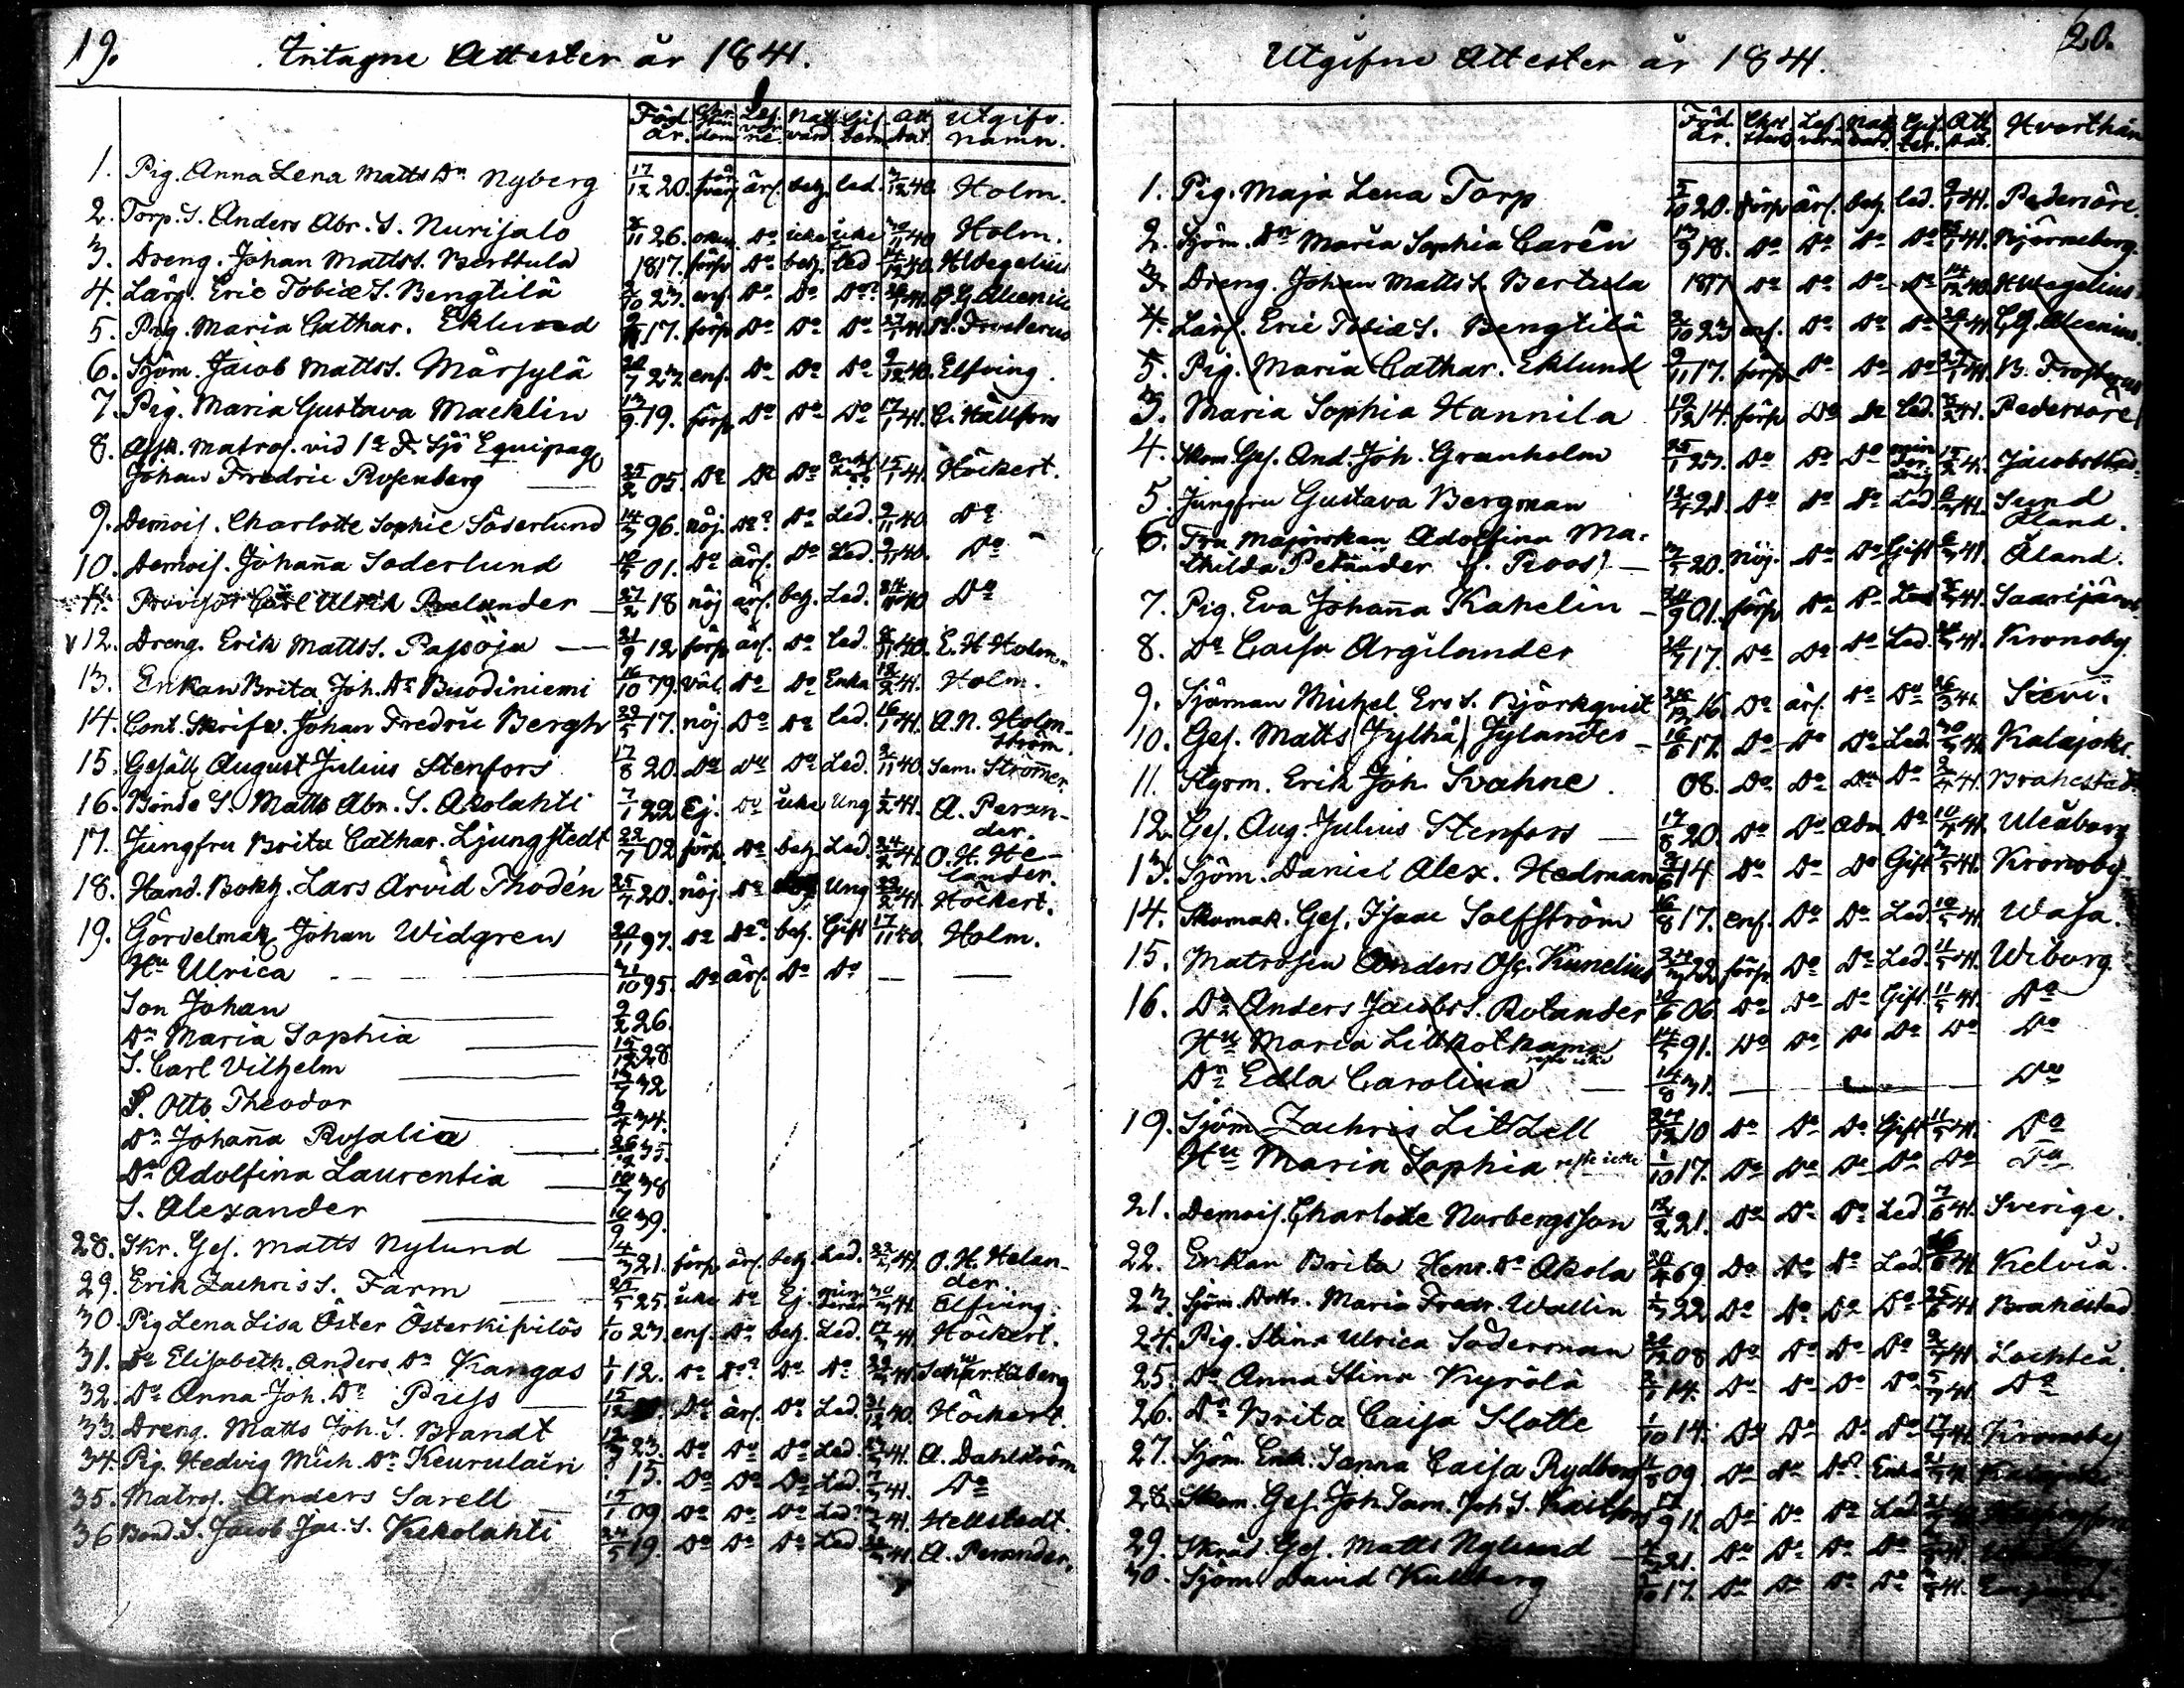 19.
Intagne Attester år 1841.
Föd. år. Chri- sten dom Läs. var ne. Natt vard. Gif. term Att. dat. Utgifv. namn.
1. Pig. Anna Lena Matts Dr Nyberg 17/12 20. förf. ärl. beh. led. /12 40. Holm.
2. Torp. S. Anders Abr. S. Nurijalo /11 26. Do icke icke /11 40 Holm.
3. Dreng. Johan Mattss. Berttula 1817. förf Do beh. led /12 40. H Wegelius
4. Lärg. Eric Tobiæ S. Bengtilä /10 23. enf. Do Do Do /1 41.
5. Pig. Maria Cathar. Eklund 9/11 17. förf Do Do Do 27/1 41 B. Frosterus
6. Sjöm. Jacob Mattss. Mårsylä /7 23. enf. Do Do Do 9/12 40. Elfving.
7. Pig. Maria Gustava Macklin 13/9 19. förf Do Do Do 17/1 41. E. Hällfors
8. Afsk. Matros. vid 1a F. Sjö Equipage
Johan Fredric Rosenberg 25/2 05. Do Do Do 15/1 41. Höckert.
9. Demois. Charlotte Sophie Söderlund 14/3 96. nöj. Do Do Led. 9/11 40 Do
10. Demois. Johanna Soderlund 01. Do ärl. Do Led. 9/11 40. Do
11. Provisor Carl Ulrik Relander 27/2 18 nöj ärl. beh. Led. 40 Do
12. Dreng. Erik Mattss. Pasoja 21/9 12 förf ärl. Do led. /11 40. E. H Holm.
13. Enkan Brita Joh. Dr Buodiniemi 16/10 79. väl. Do Do Enka 18/2 41. Holm.
14. Cont. Skrifv. Johan Fredric Bergh 29/5 17. nöj. Do Do led. 16/1 41. A. N. Holm-
ström.
15. Gesäll August Julius Stenfors 17/8 20. Do Do Do Led. /11 40. Sam. Strömer.
16. Bonde S. Matts Abr. S. Akolahti 7/1 22 Ej. Do icke Ung 1/2 41. A. Peran-
der.
17. Jungfru Brita Cathar. Ljungstedt 22/7 02 förf. Do beh. Led. 24/2 41. O. H. He-
lander.
18. Hand. Bokh. Lars Arvid Thodén 25/4 20. nöj. Do Ung 22/2 41. Höckert.
19. Görvelmak. Johan Widgren 20/11 97. Do Do beh. Gift 17/11 40. Holm.
Hu Ulrica 31/10 95. Do ärl. Do Do
Son Johan 9/2 26.
Dr Maria Sophia 15/12 28
S. Carl Vilhelm /7 32
S. Otto Theodor 9/4 34.
Dr Johanna Rosalia 26/2 35.
Do Adolfina Laurentia 10/7 38
S. Alexander 10/9 39.
28. Skr. Ges. Matts Nylund 14/3 21. förf ärl. beh. Led. 22/3 41. O. H. Helan-
der
29. Erik Zachris S. Färm 25/5 25. icke Do Ej. 30/3 41. Elfving.
30. Pig Lena Lisa Öster Österkipilös 1/10 23. enf. Do beh. Led. 17/3 41. Höckert.
31. Do Elisabeth. Anders Dr Kangas 1/1 12. Do Do Do Do 22/3 41. Schwartzberg
32. Do Anna Joh. Dr Puss 15/12 Do ärl. Do Led. 31/12 40. Höckert.
33. Dreng. Matts Joh. S. Brandt 23. Do Do Do Led 41. A. Dahlström
34. Pig. Hedvig Mich. Dr Keurulain 15. Do Do Do Led. 41. Do
35. Matros. Anders Sarell 15/1 09 Do Do Do Led 41. Hellstedt.
36 Bond. S. Jacob Jac. S. Kekolahti 24/5 19. Do Do Do Led 41. A. Perander.
20.
Utgifne Attester år 1841.
Föd. år. Chri stend. Läs. varn Natt vard. Gif. ter. Att. dat. Hvarthän
1. Pig. Maja Lena Torp 5/10 20. förf ärl. beh. led. 9/1 41. Pedersöre.
2. Sjöm. Dr Maria Sophia Carén 13/3 18. Do Do Do Do 41. Björneborg.
3. Dreng. Johan Matts S. Bertula 1817 Do Do Do Do 14/12 40. H Wegelius
4. Lärl. Eric Tobiæ S. Bengtilä /10 23 enf. Do Do Do /1 41
5. Pig. Maria Cathar. Eklund 9/11 17. förf Do Do Do 27/1 41. B. Frosterus
3. Maria Sophia Hannila 19/12 14. förf Do Do Led. /2 41. Pedersöre
4. Skom. Ges. And. Joh. Granholm 25/1 23. Do Do Do 15/2 41. Jacobstad.
5. Jungfru Gustava Bergman /4 21. Do Do Do Led 41. Sund
Åland.
6. Fru Majorskan Adolfina Ma-
thilda Petander f. Roos. /5 20. Nöj. Do Do Gift 41 Åland.
7. Pig. Eva Johanna Kahelin 24/9 01. förf Do Do Led 41. Saarijärvi
8. Do Caisa Argilander 24/7 17. Do Do Do Led. 41. Kronoby
9. Sjöman Michel Ers S. Björkqvist 24/12 16. Do ärl. Do Do 26/3 41. Sievi.
10. Ges. Matts (Jylhä) Jylandes 16/6 17. Do Do Do Led. 30/3 41. Kalajoki
11. Styrm. Erik Joh. Svahne. 08. Do Do Do Do 41. Brahestad.
12. Ges. Aug. Julius Stenfors 17/8 20. Do Do Do Do 10/4 41. Uleåborg
13. Sjöm. Daniel Alex. Hedman /6 14 Do Do Do Gift /5 41. Kronoby
14. Skomak. Ges. Isaac Solfström 16/8 17. enf. Do Do Led. /5 41. Wasa.
15. Matrosen Anders Kunelius 24/3 22 förf. Do Do Led. 11/5 41. Wiborg
16. Do Anders Jacobs S. Rolander 10/6 06 Do Do Do Gift. 11/5 41. Do
Hu Maria Lillkotkama 14/5 91. Do Do Do Do Do Do
Dr Edla Carolina reste icke 14/8 31. Do
19. Sjöm Zachris Litzell 24/12 10 Do Do Do Gift 11/5 41. Do
Hu Maria Sophia reste icke 1/10 17. Do Do Do Do Do Do
21. Demois. Charlotte Norbergsson 12/2 21. Do Do Do Led. 7/6 41. Sverige.
22. Enkan Brita Henr. Dr Akola 20/4 69 Do Do Do Led. 41 Kelviå.
23. Sjöm. Dottr. Maria Fredr. Wallin 1/3 22 Do Do Do Do 25/6 41 Brahestad
24. Pig. Stina Ulrica Söderman 24/12 08 Do Do Do Do 41. Lochteå.
25. Do Anna Stina Kyrölä 14. Do Do Do Do 5/7 41 Do
26. Do Brita Caisa Slotte 1/10 14. Do Do Do Do 17/7 41 Kronoby
27. Sjöm. Enk. Sanna Caisa Rydberg /8 09 Do Do Do Enka 41
28. Skom. Ges. Joh. Sam. Joh. S. 17/9 11. Do Do Do Led
29. Skräd. Ges. Matts Nylund 21. Do Do Do Do 41.
30. Sjöm David Kullberg /10 17. Do Do Do Do 41.